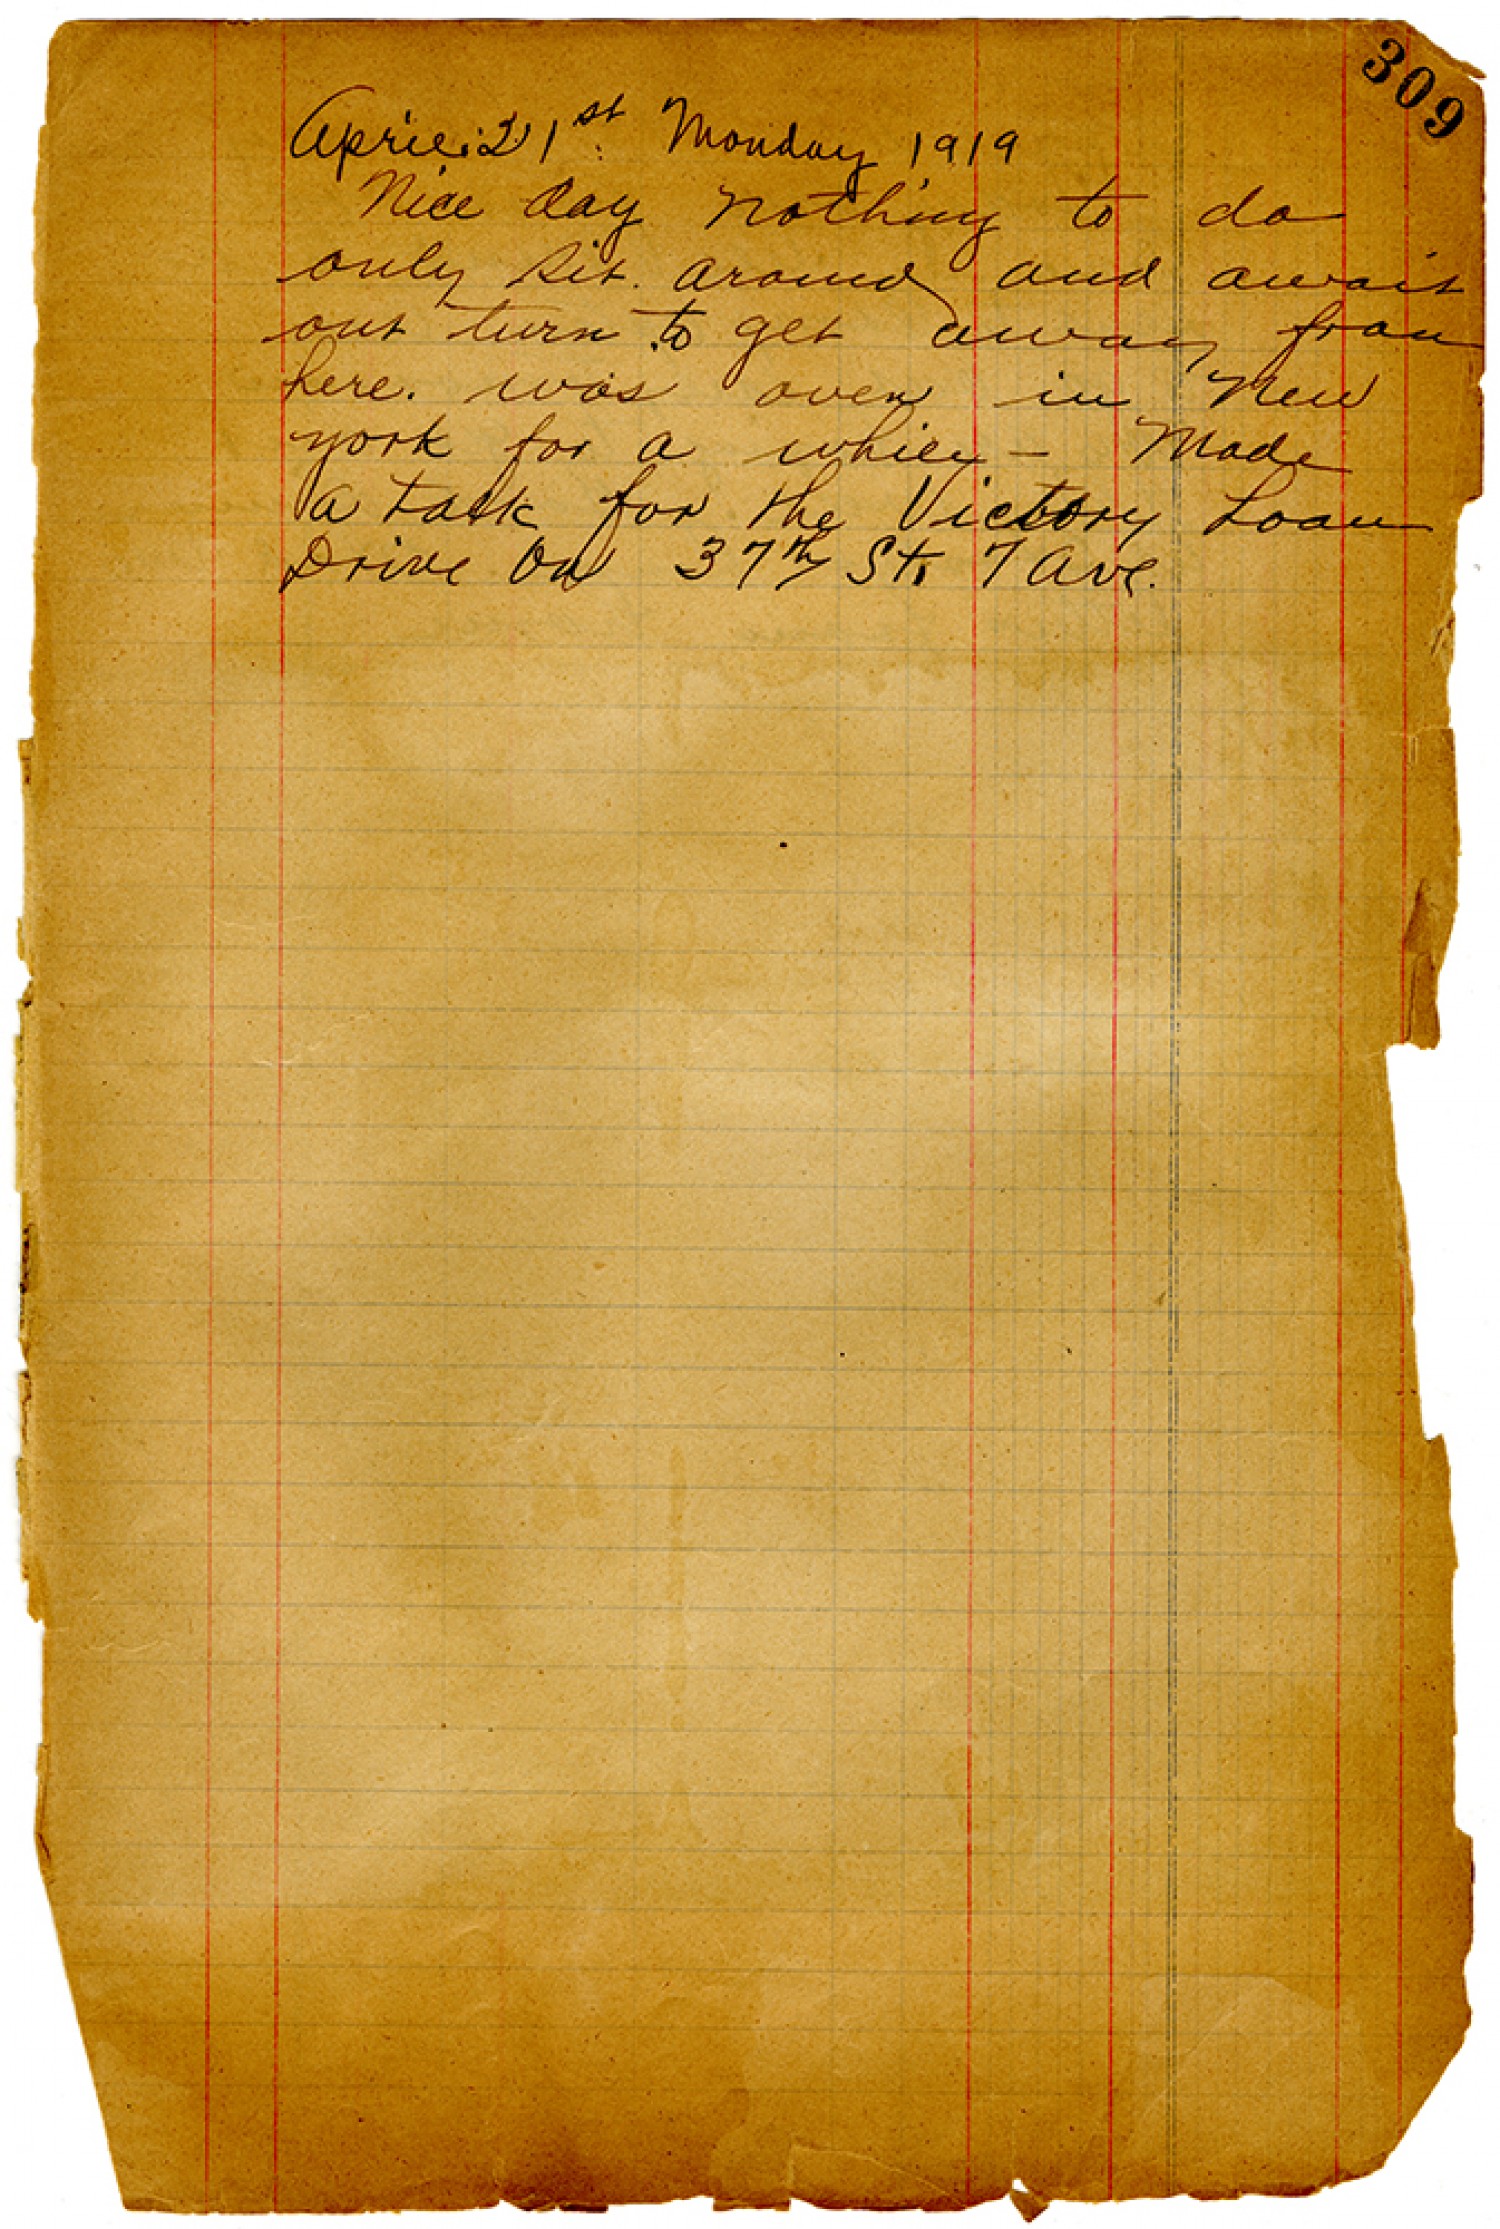 309
April 21st Monday 1919
Nice day nothing to do
only sit around and await
out turn to get away from
here. was over in New
york for a while - Made
a talk for the Victory Loan
Drive On 37th St. 7 Ave.